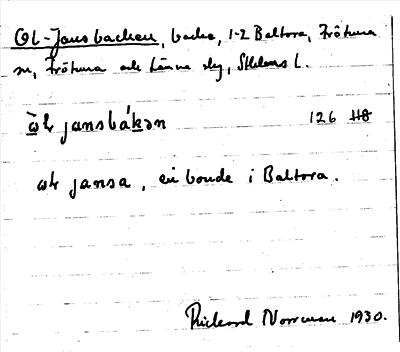 Ol-Jansbacken, backe, 1-2 Baltora, Frötuna
sn, Frötuna och Länna slg, Sthlms l.
ὼɫ jansbákən 126 H8
ωɫ jansa, en bonde i Baltora.
Rickard Norrman 1930.